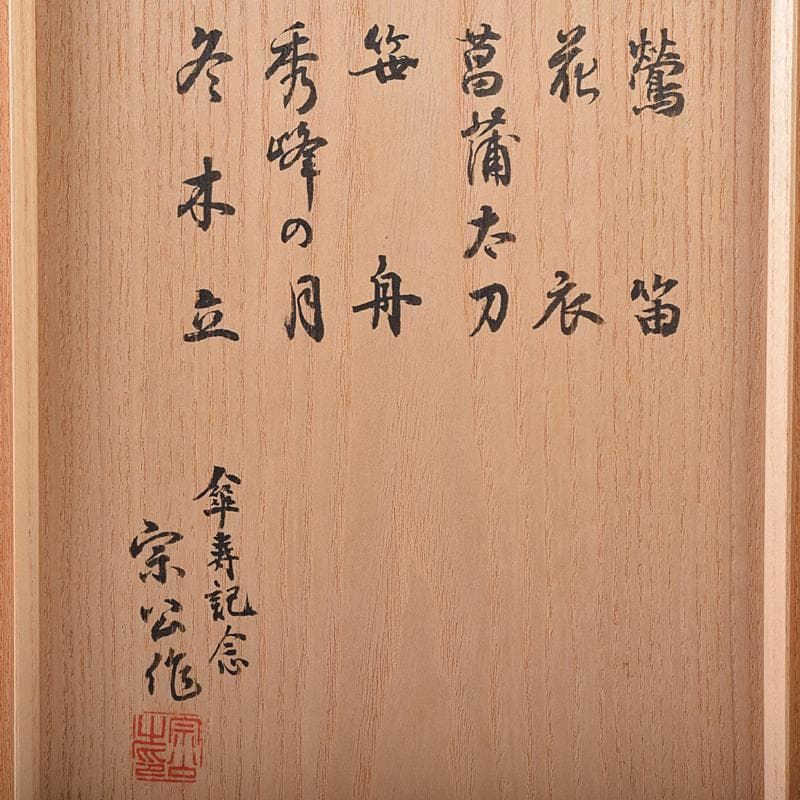 鶯笛
花衣
菖蒲太刀
笹舟
秀峰の月
冬木立
傘寿記念
宗公作
宗公之印